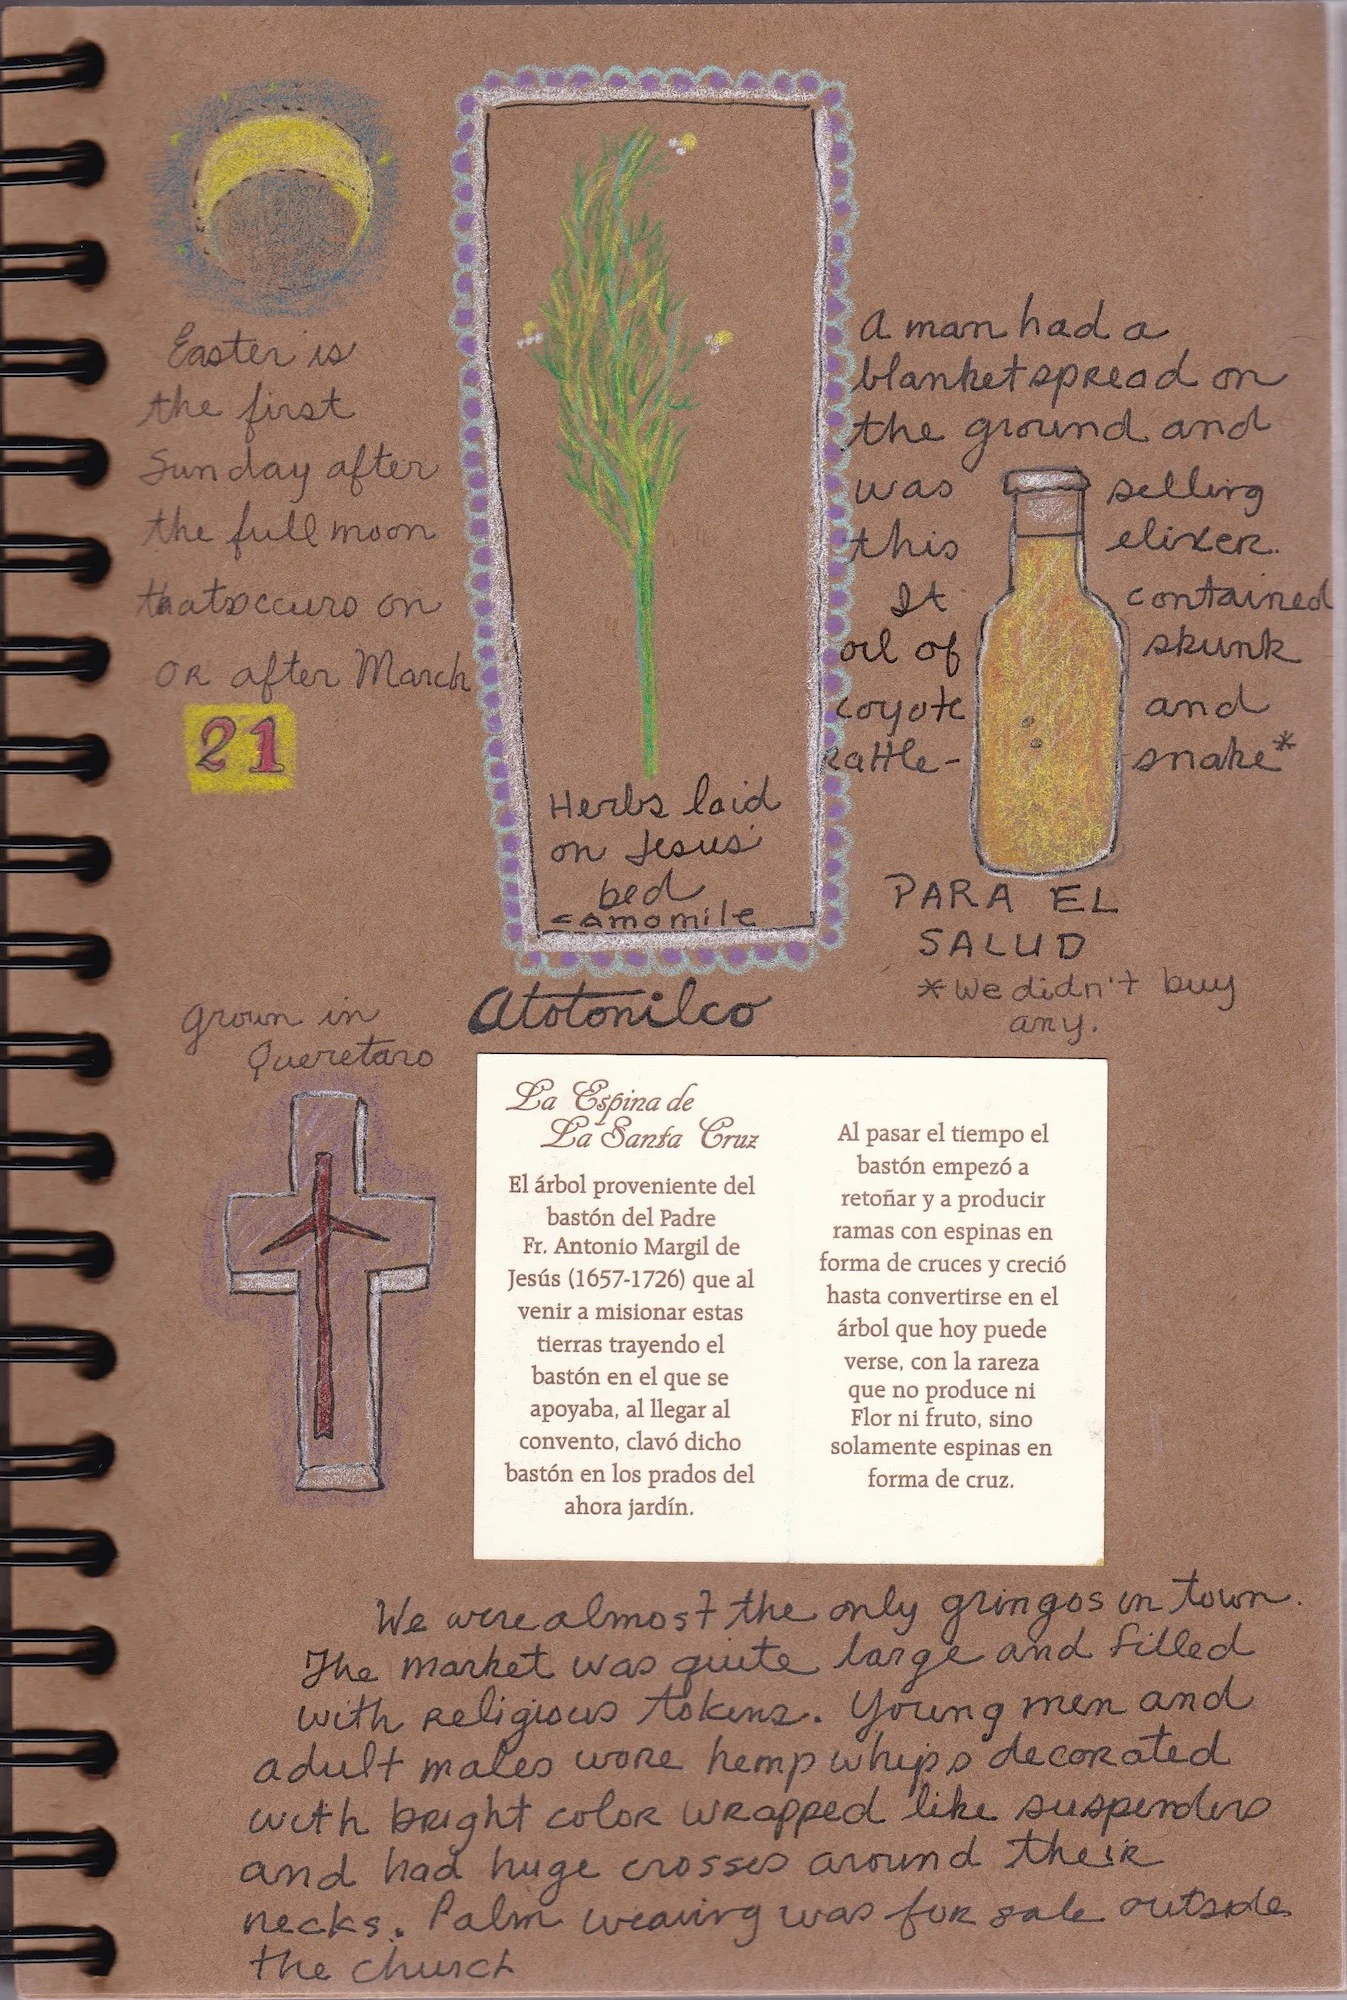 Easter is
the first
Sunday after
the full moon
that occurs on
or after March
21
Herbs laid
on Jesus'
bed
camomile
Atotonilco
A man had a
blanket spread on
the ground and
was selling
this elixer.
It contained
oil of skunk
coyote and
rattle- snake*
PARA EL
SALUD
*We didn't buy
any.
grown in
Queretaro
La Espina de
La Santa Cruz
El árbol proveniente del
bastón del Padre
Fr. Antonio Margil de
Jesús (1657-1726) que al
venir a misionar estas
tierras trayendo el
bastón en el que se
apoyaba, al llegar al
convento, clavó dicho
bastón en los prados del
ahora jardín.
Al pasar el tiempo el
bastón empezó a
retoñar y a producir
ramas con espinas en
forma de cruces y creció
hasta convertirse en el
árbol que hoy puede
verse, con la rareza
que no produce ni
Flor ni fruto, sino
solamente espinas en
forma de cruz.
We were almost the only gringos in town.
The market was quite large and filled
with religious tokens. Young men and
adult males wore hemp whips decorated
with bright color wrapped like suspenders
and had huge crosses around their
necks. Palm weaving was for sale outside
the church